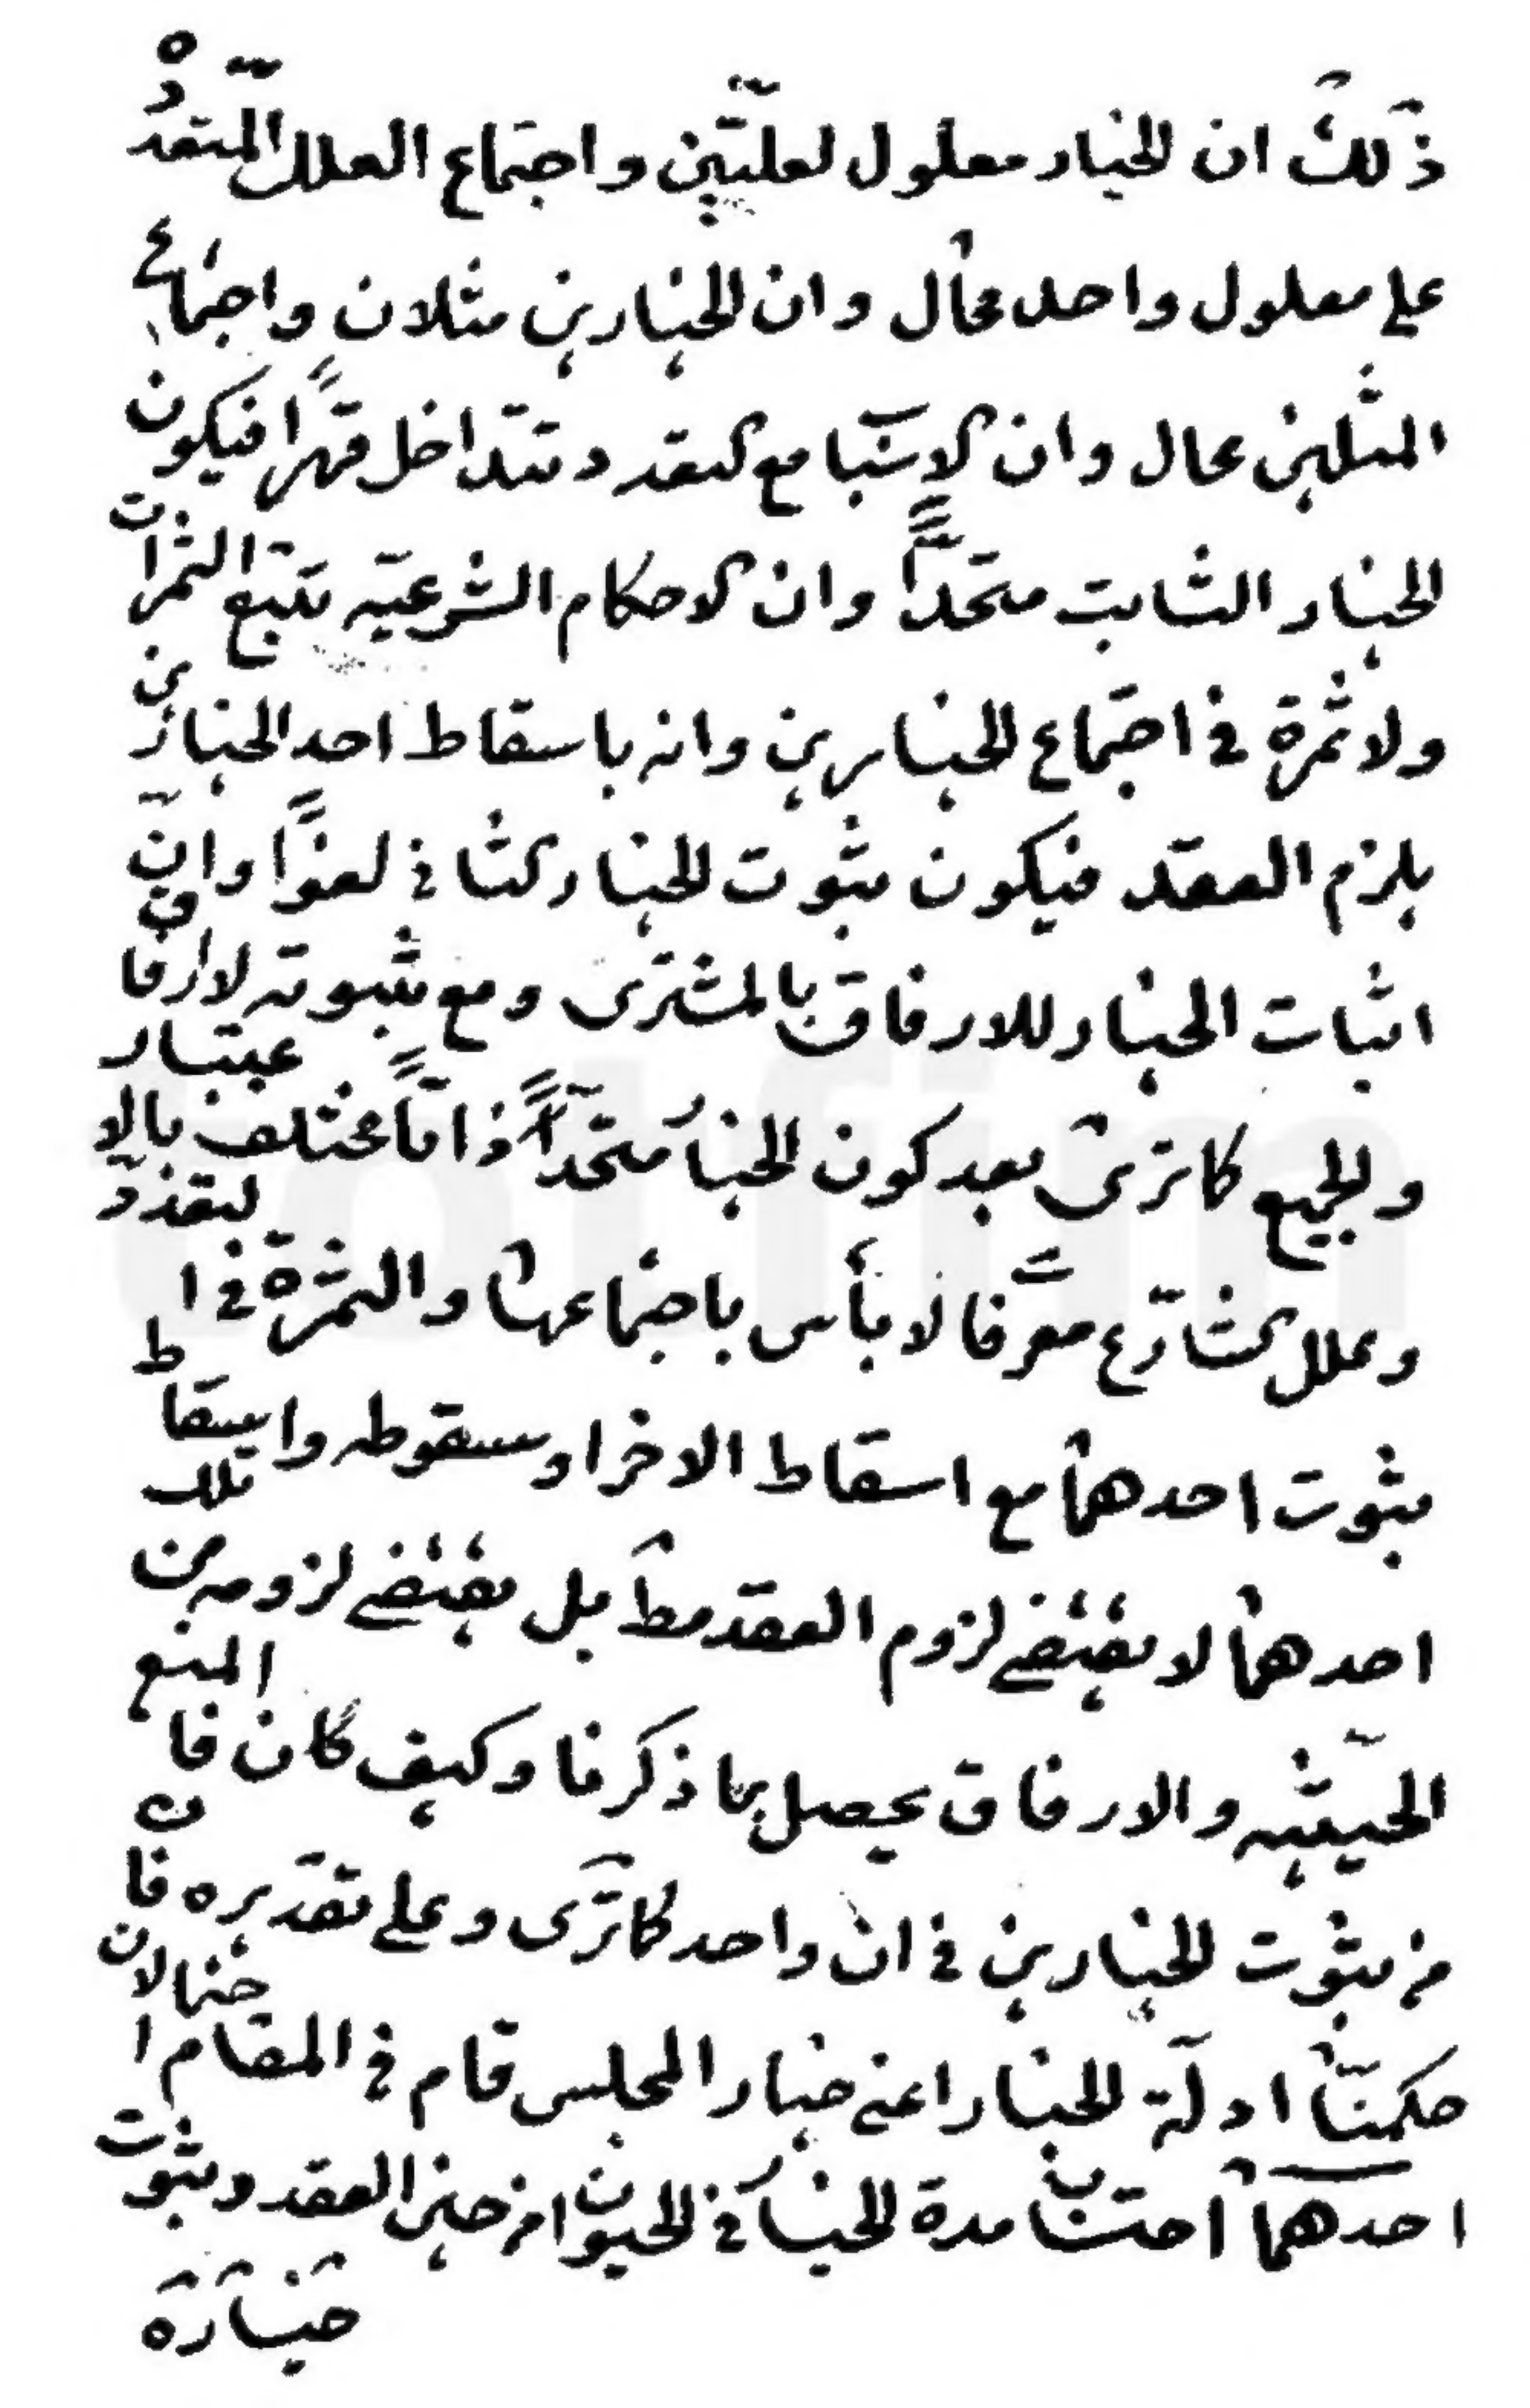 ذلك ان الخيار معلول لعلتين واجتماع العلل المتعددة
على معلول واحد محال وان الخيارين مثلان واجتماع
المثلين محال وان الاسباب مع التعدد تتداخل قهرًا فيكون
الخيار الثابت متحدًا وان الاحكام الشرعيه تتبع الثمرات
ولا ثمرة فى اجتماع الخيارين وانه باسقاط احد الخيارين
يلزم العقد فيكون ثبوت الخيار الثانى لغوًا وان
اثبات الخيار للارفاق بالمشترى ومع ثبوته لا ارفاق
والجميع كما ترى بعد كون الخيار متحدًا ذاتًا مختلف بالاعتبار
وعلل الشارع معرفا لا بأس باجتماعها والثمرة فى التعدد
ثبوت احدهما مع اسقاط الاخر او سقوطه واسقاط
احدهما لا يقتضى لزوم العقد مط بل يقتضى لزومه من تلك
الحيثيه والارفاق يحصل بما ذكرنا وكيف كان فالمنع
من ثبوت الخيارين فى ان واحد كما ترى وعلى تقديره فان
حكمنا ادلة الخيار اعنى خيار المجلس قام فى المقام احتمالان
احدهما احتساب مدة الخيار فى الحيوان من حين العقد وثبوت
خياره